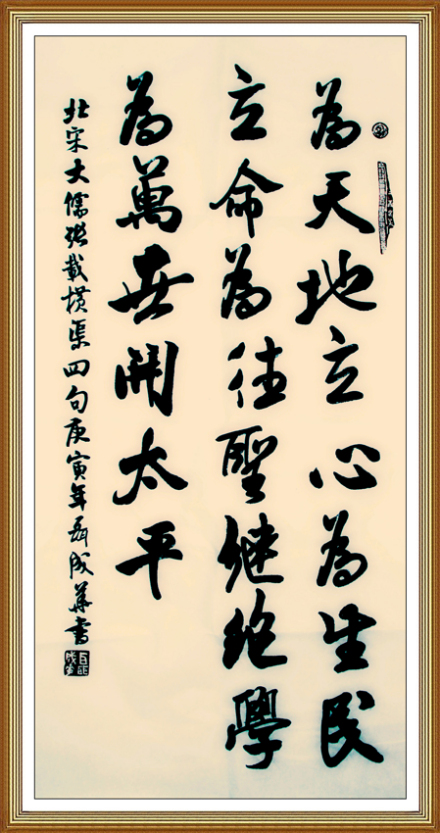 為天地立心為生民
立命為往聖继绝學
為萬世開太平
北宋大儒張載横渠四句庚寅年成華書